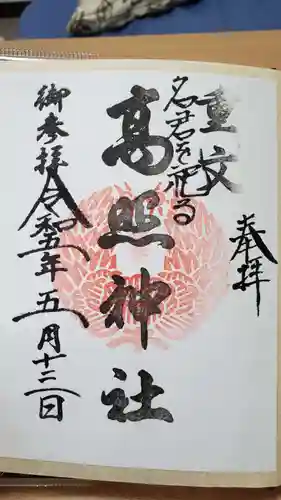 奉拝
重文
名君を祀る
高照神社
御参拝
令和五年五月十三日